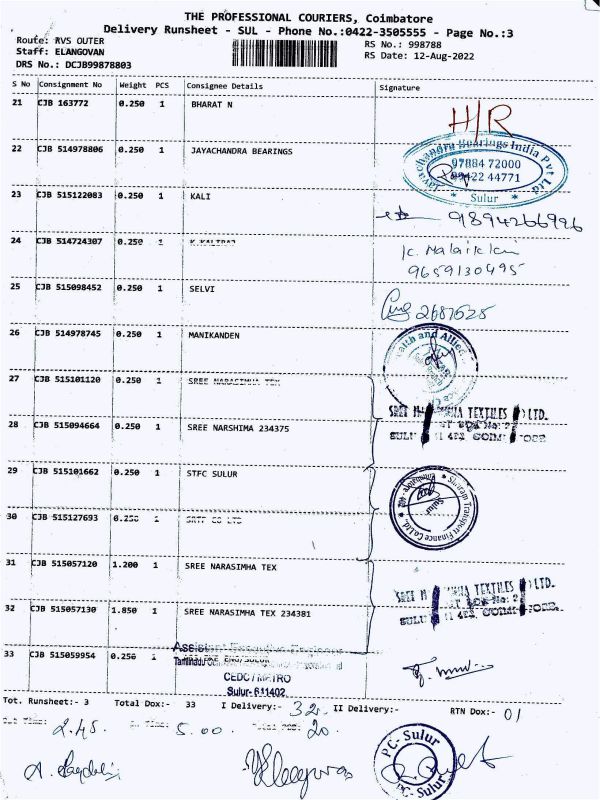 THE PROFESSIONAL COURIERS, Coimbatore
Delivery Runsheet - SUL - Phone No.:0422-3505555 - Page No.:3
Route: RVS OUTER
RS No.: 998788
Staff: ELANGOVAN
RS Date: 12-Aug-2022
DRS No.: DCJB99878803
S No Consignment No Weight PCS Consignee Details Signature
21 CJB 163772 0.250 1 BHARAT N
H/R
22 CJB 514978806 0.250 1 JAYACHANDRA BEARINGS
Jayachandra Bearings India Pvt Ltd
97884 72000
44771
Sulur
23 CJB 515122083 0.250 1 KALI
9894266996
24 CJB 514724307 0.250 1
9659130495
25 CJB 515098452 0.250 1 SELVI
2687628
26 CJB 514978745 0.250 1 MANIKANDEN
and Allied
27 CJB 515101120 0.250 1 SREE NARASIMHA TEX
SREE TEXTILES LTD.
28 CJB 515094664 0.250 1 SREE NARSHIMA 234375
29 CJB 515101662 0.250 1 STFC SULUR
Shriram Transport Finance Co.Ltd.
Sulur
30 CJB 515127693 0.250 1
31 CJB 515057120 1.200 1 SREE NARASIMHA TEX
SREE TEXTILES LTD.
32 CJB 515057130 1.850 1 SREE NARASIMHA TEX 234381
33 CJB 515059954 0.250 1
Assistant Executive Engineer
CEDC / METRO
Sulur- 641402
Tot. Runsheet:- 3 Total Dox:- 33 I Delivery:- 32 II Delivery:- RTN Dox:- 01
Out Time: 2.45. In Time: 5.00. 20
PC-Sulur
PC-Sulur